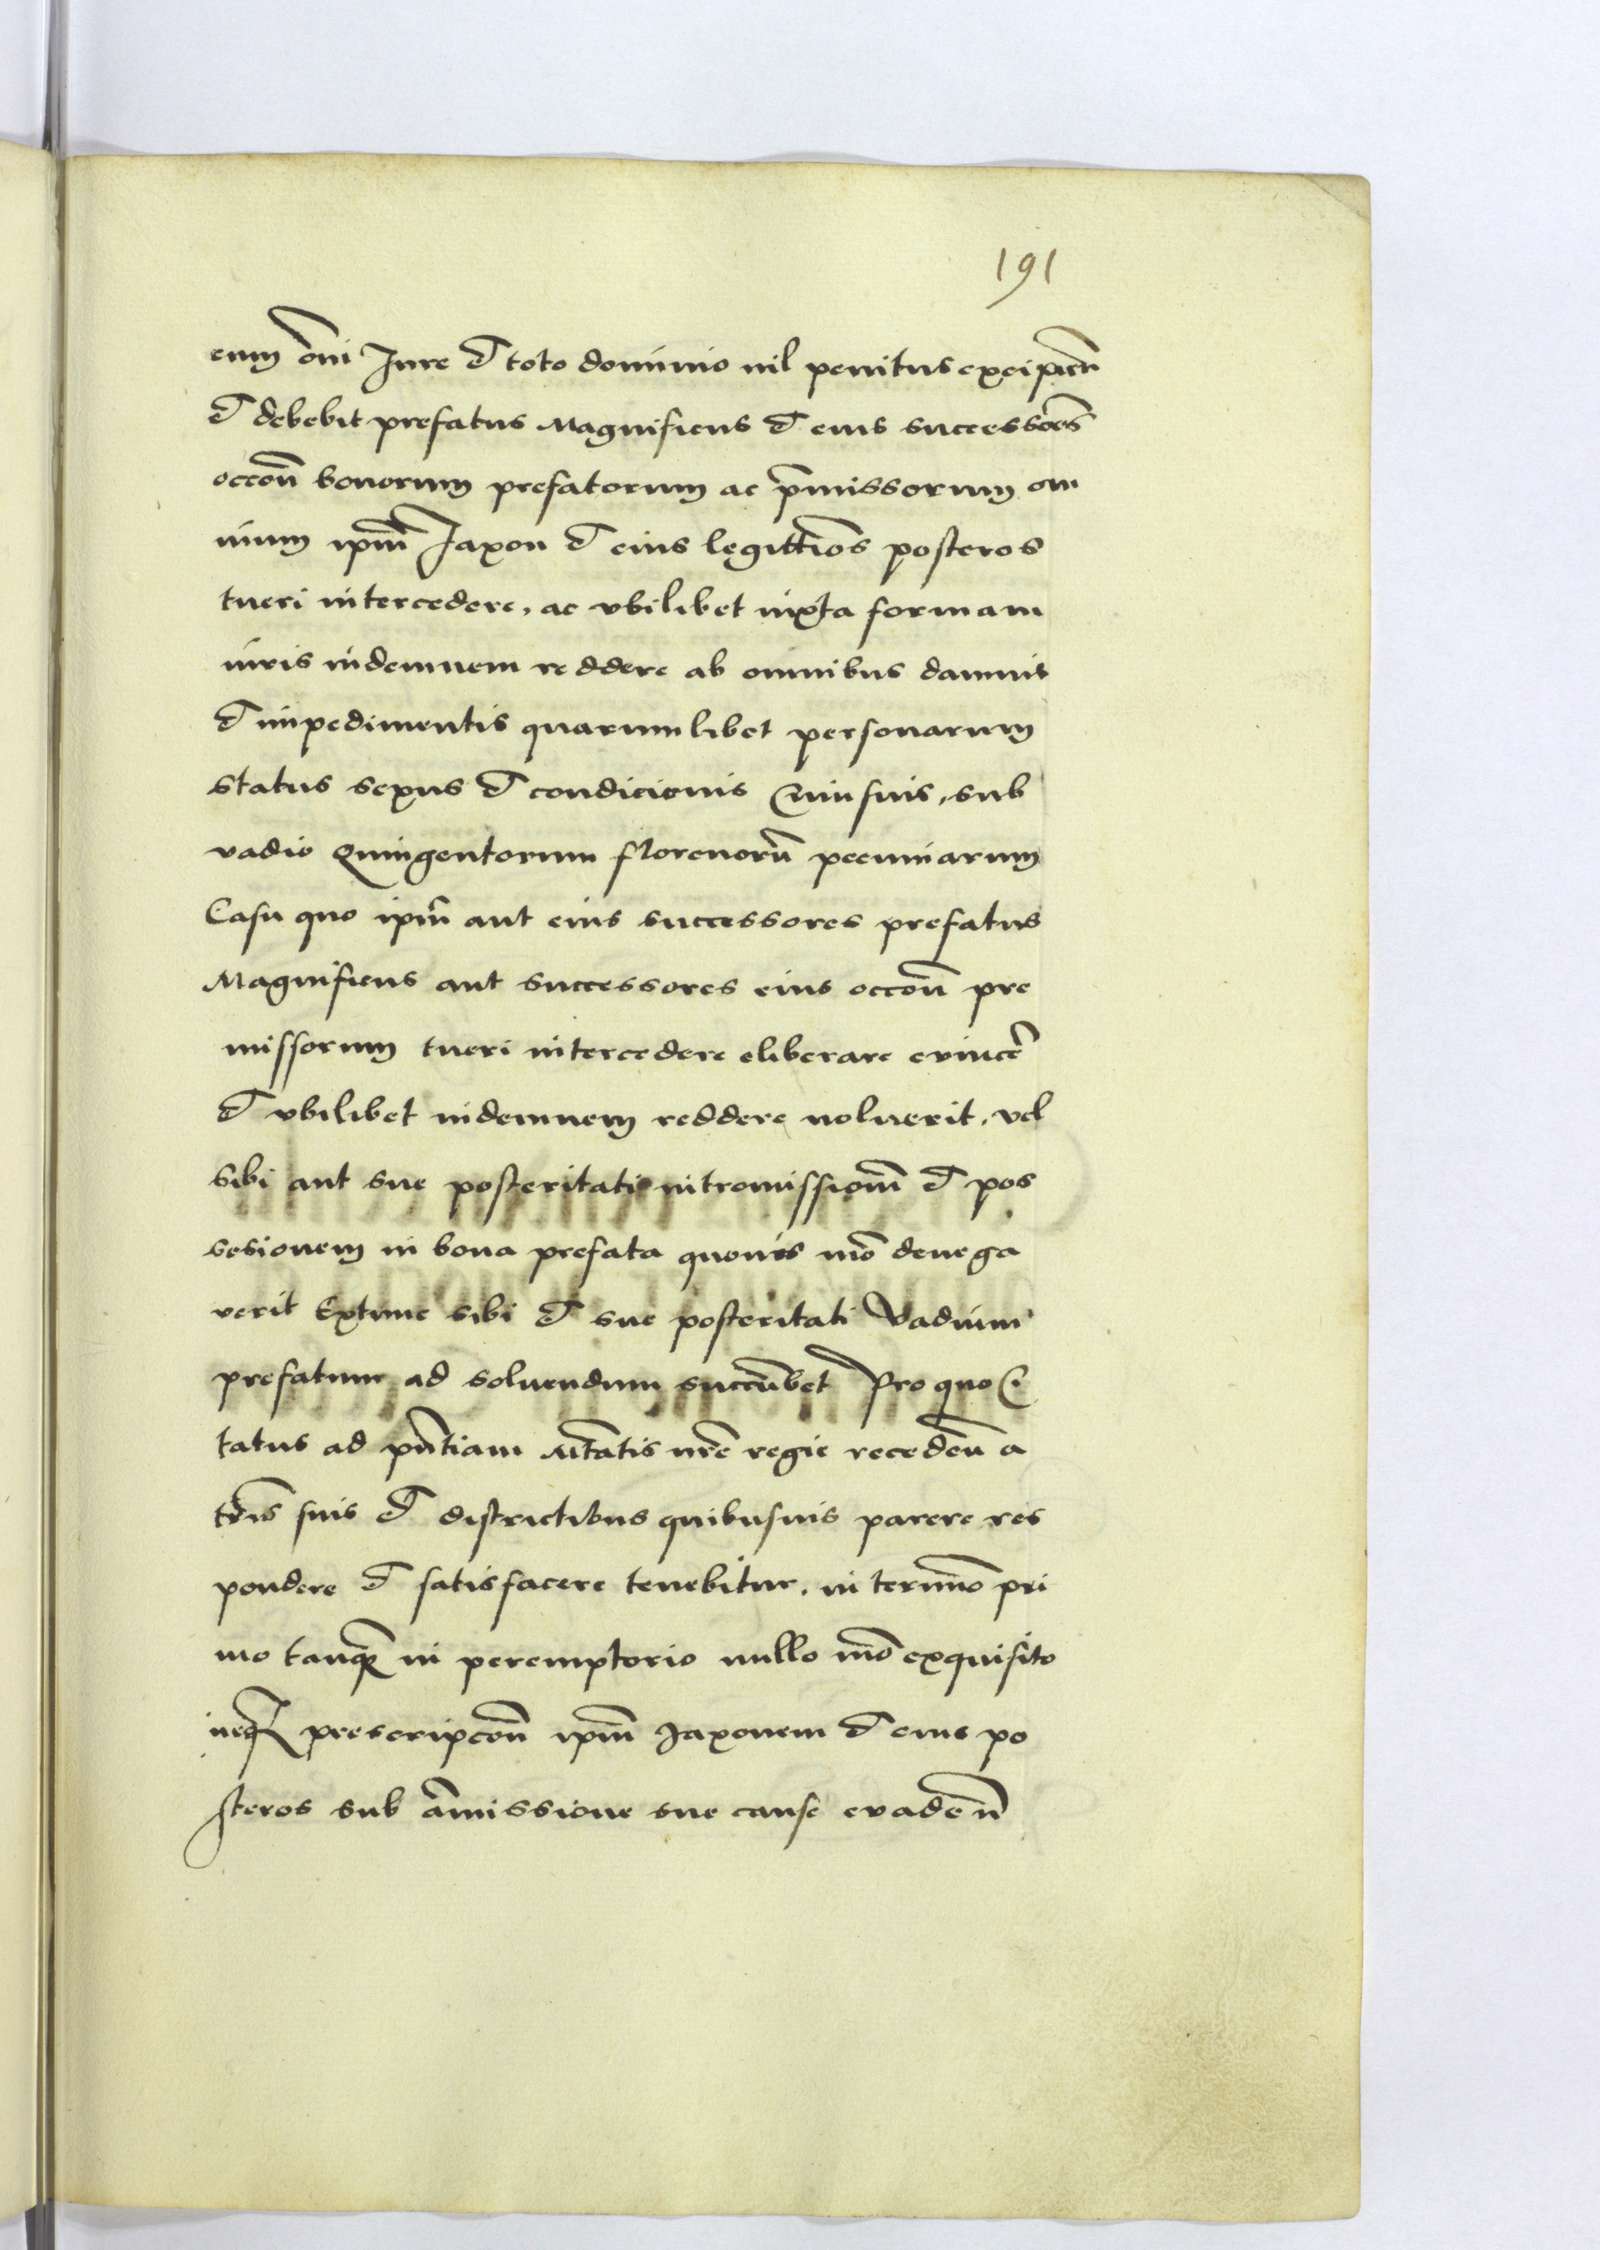 191
cum om̅i Jure et toto dominio nil penitus excipien̅
et debebit prefatus Magnificus et eius successo̅es
occo̅n bonorum prefatorum ac p̅missorum om
nium ip̅m Jaxon et eius legitti̅os posteros
tueri intercedere, ac vbilibet iuxta formam
iuris indemnem reddere ab omnibus damnis
et impedimentis quarumlibet personarum
status sexus et condicionis cuiusuis, sub
vadio Quingentorum florenoru̅ pecuniarum
Casu quo ip̅m aut eius successores prefatus
Magnificus aut successores eius occo̅n pre
missorum tueri intercedere eliberare euince̅
et vbilibet indemnem reddere noluerit, vel
sibi aut sue posteritati intromissione̅ et pos
sesionem in bona prefata quouis mo̅ denega
uerit Extunc sibi et sue posteritati Vadium
prefatum ad soluendum succu̅bet Pro quo ci
tatus ad pn̅tiam M̅tatis nr̅e regie receden̅ a
tr̅is suis et districtibus quibusuis parere res
pondere et satisfacere tenebitur, in termi̅o pri
mo tanq̅ in peremptorio nullo mo̅ exquisito
neq̅ prescripco̅n ip̅m Jaxonem et eius po
steros sub a̅missione sue cause euaden̅